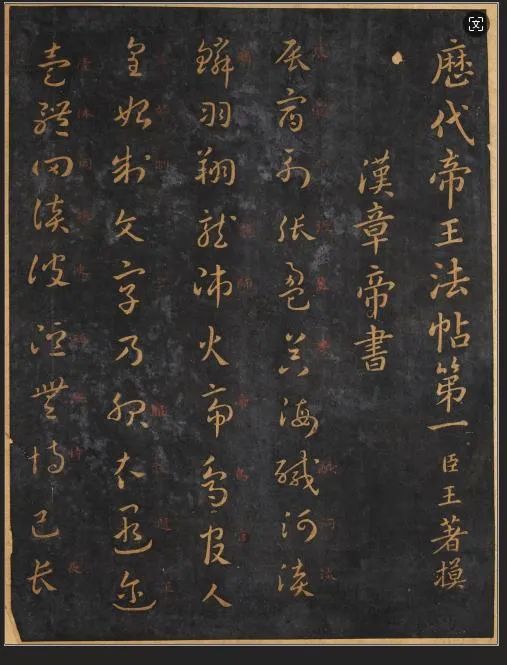 歷代帝王法帖第一 臣王著摸
漢章帝書
辰宿列張盈昃海鹹河淡
鱗羽翔龍師火帝鳥官人
皇始制文字乃服衣遐邇
壹體罔談彼短靡恃己長